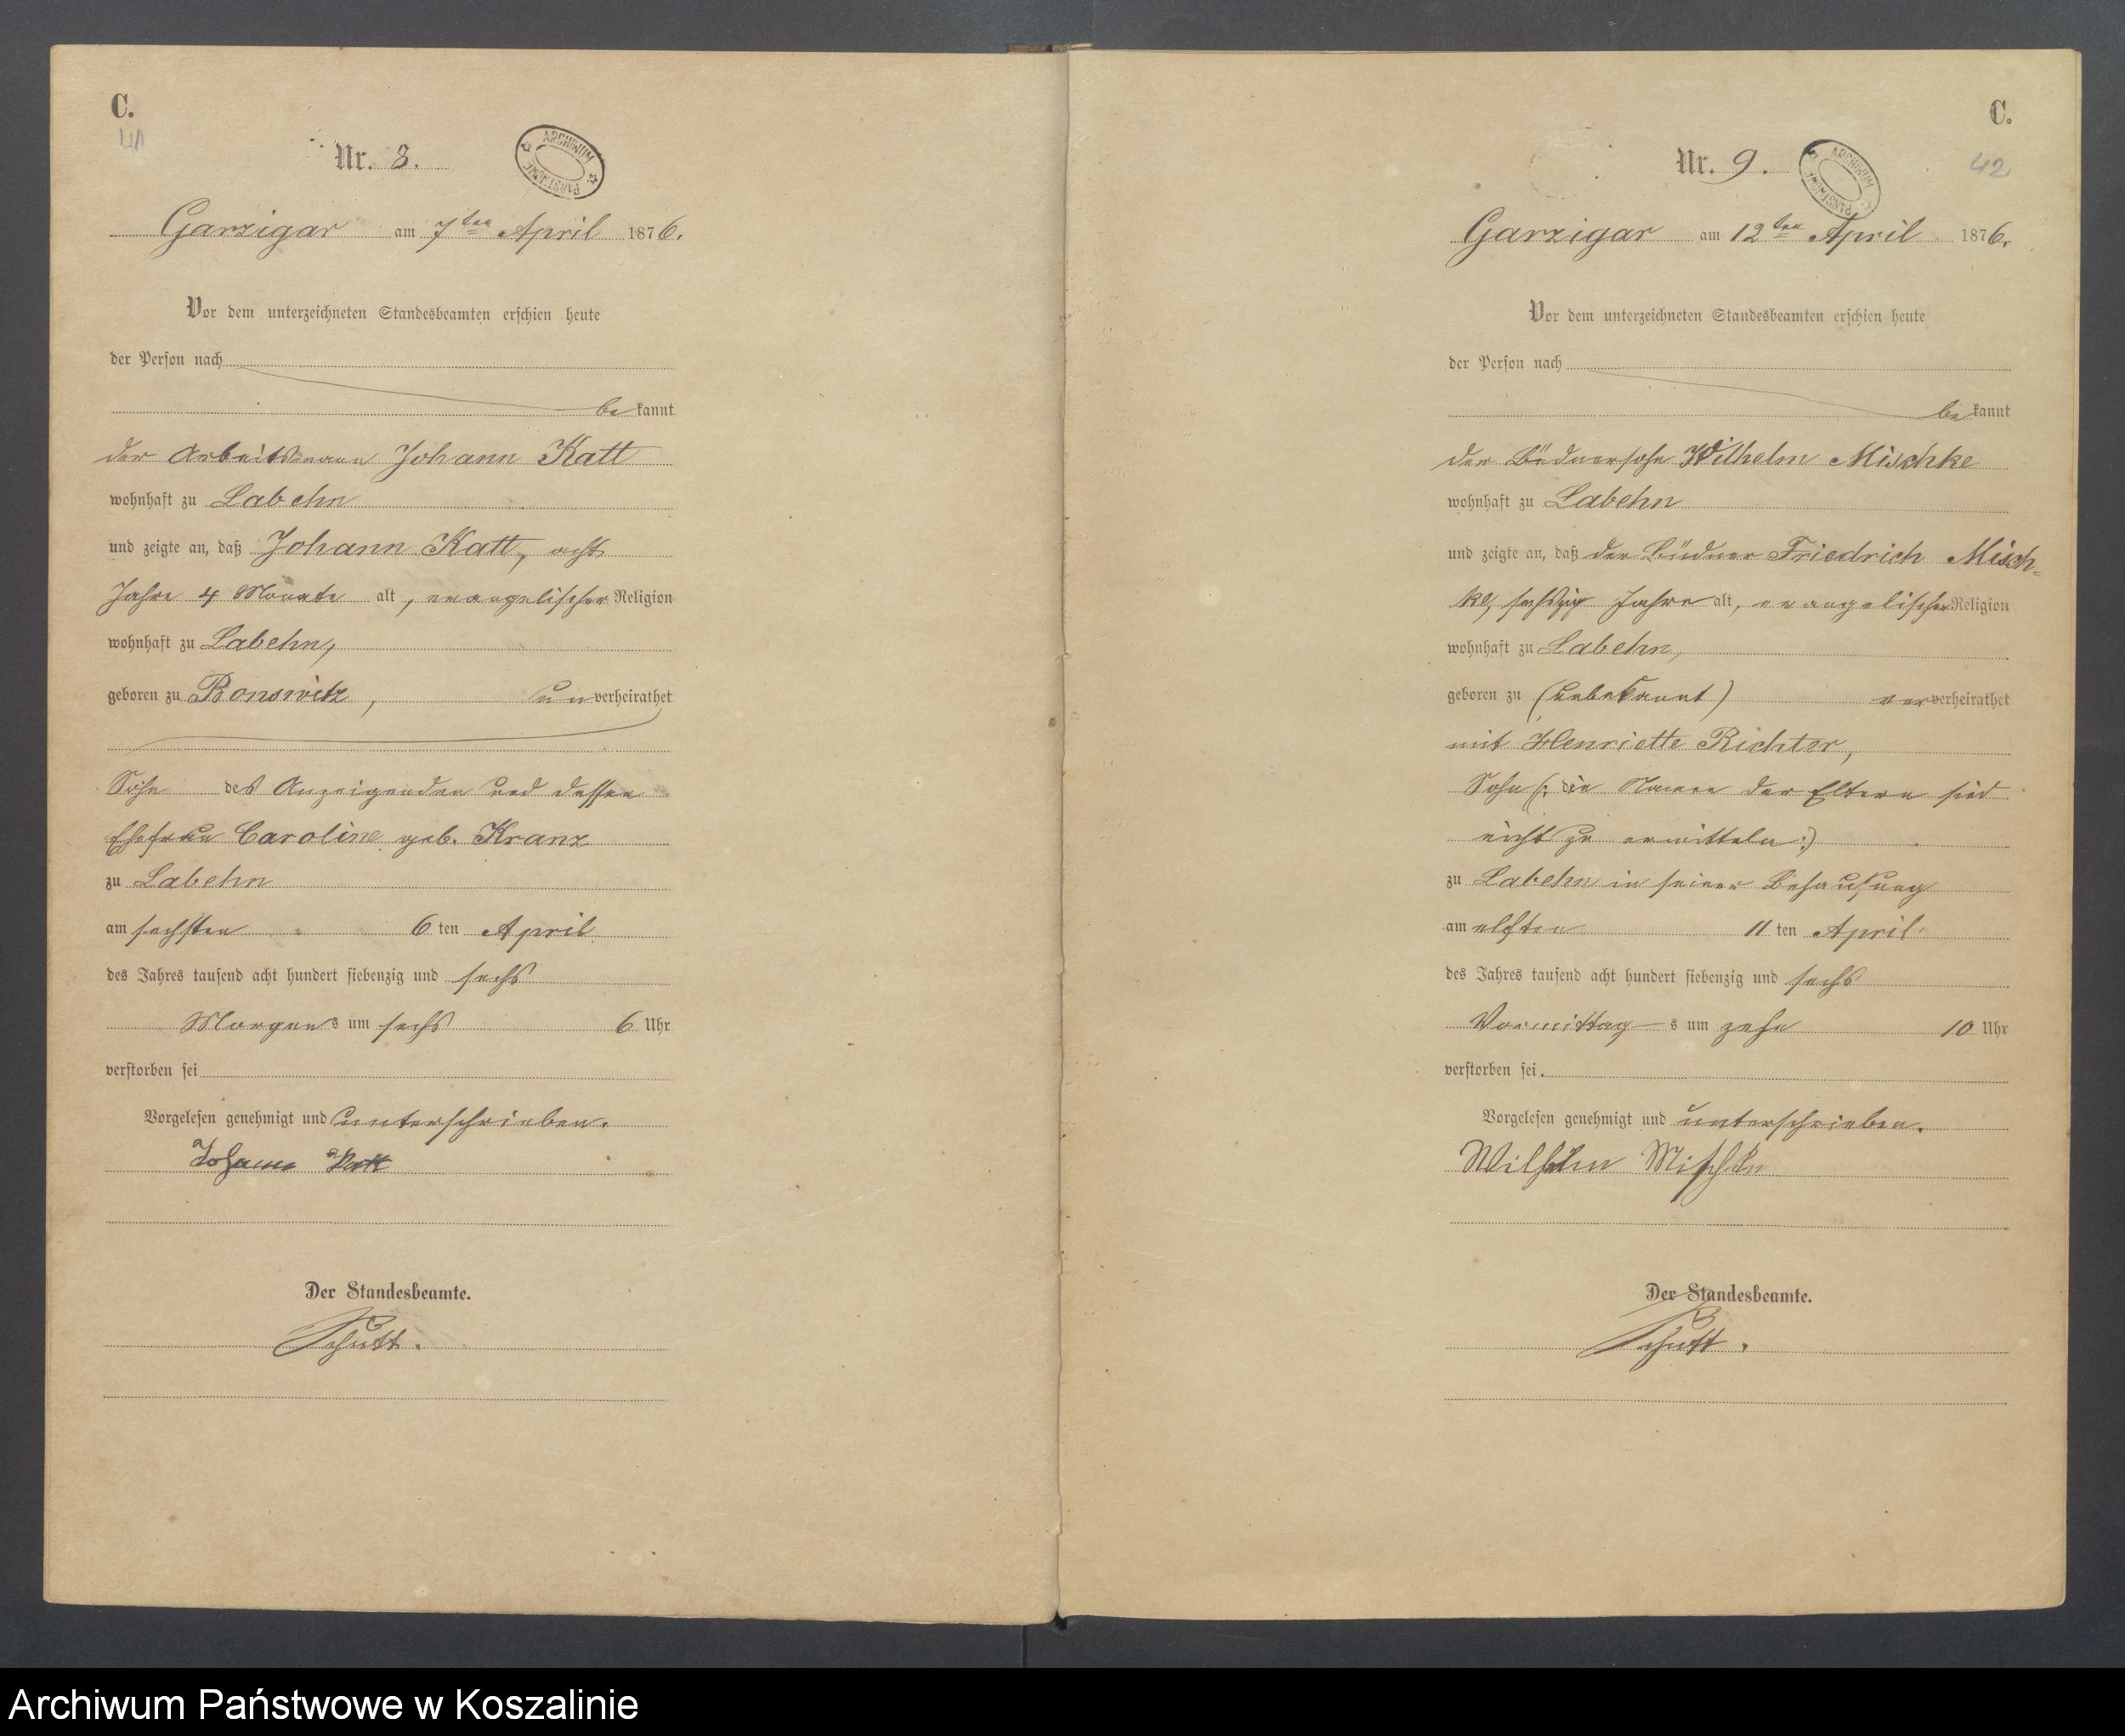 C.
41
Nr. 8.
ARCHIWUM PAŃSTWOWE
Garzigar am 7ten April 1876.
Vor dem unterzeichneten Standesbeamten erschien heute
der Person nach
bekannt
der Arbeitsmann Johann Katt
wohnhaft zu Labehn
und zeigte an, daß Johann Katt, acht
Jahre 4 Monate alt, evangelischer Religion
wohnhaft zu Labehn,
geboren zu Bonswitz, unverheirathet
Sohn des Anzeigenden und dessen
Ehefrau Caroline geb. Kranz
zu Labehn
am sechsten 6 ten April
des Jahres tausend acht hundert siebenzig und sechs
Morgens um sechs 6 Uhr
verstorben sei
Vorgelesen genehmigt und unterschrieben.
Johann Katt
Der Standesbeamte.
Schutt.
C.
42
Nr. 9.
ARCHIWUM PAŃSTWOWE
Garzigar am 12ten April 1876.
Vor dem unterzeichneten Standesbeamten erschien heute
der Person nach
bekannt
der Büdnersohn Wilhelm Mischke
wohnhaft zu Labehn
und zeigte an, daß der Büdner Friedrich Misch-
ke, sechszig Jahre alt, evangelischer Religion
wohnhaft zu Labehn,
geboren zu (unbekannt) ver verheirathet
mit Henriette Richter,
Sohn (: die Namen der Eltern sind
nicht zu ermitteln :)
zu Labehn in seiner Behausung
am elften 11 ten April
des Jahres tausend acht hundert siebenzig und sechs
Vormittags um zehn 10 Uhr
verstorben sei.
Vorgelesen genehmigt und unterschrieben.
Wilhelm Mischke
Der Standesbeamte.
Schutt.
Archiwum Państwowe w Koszalinie